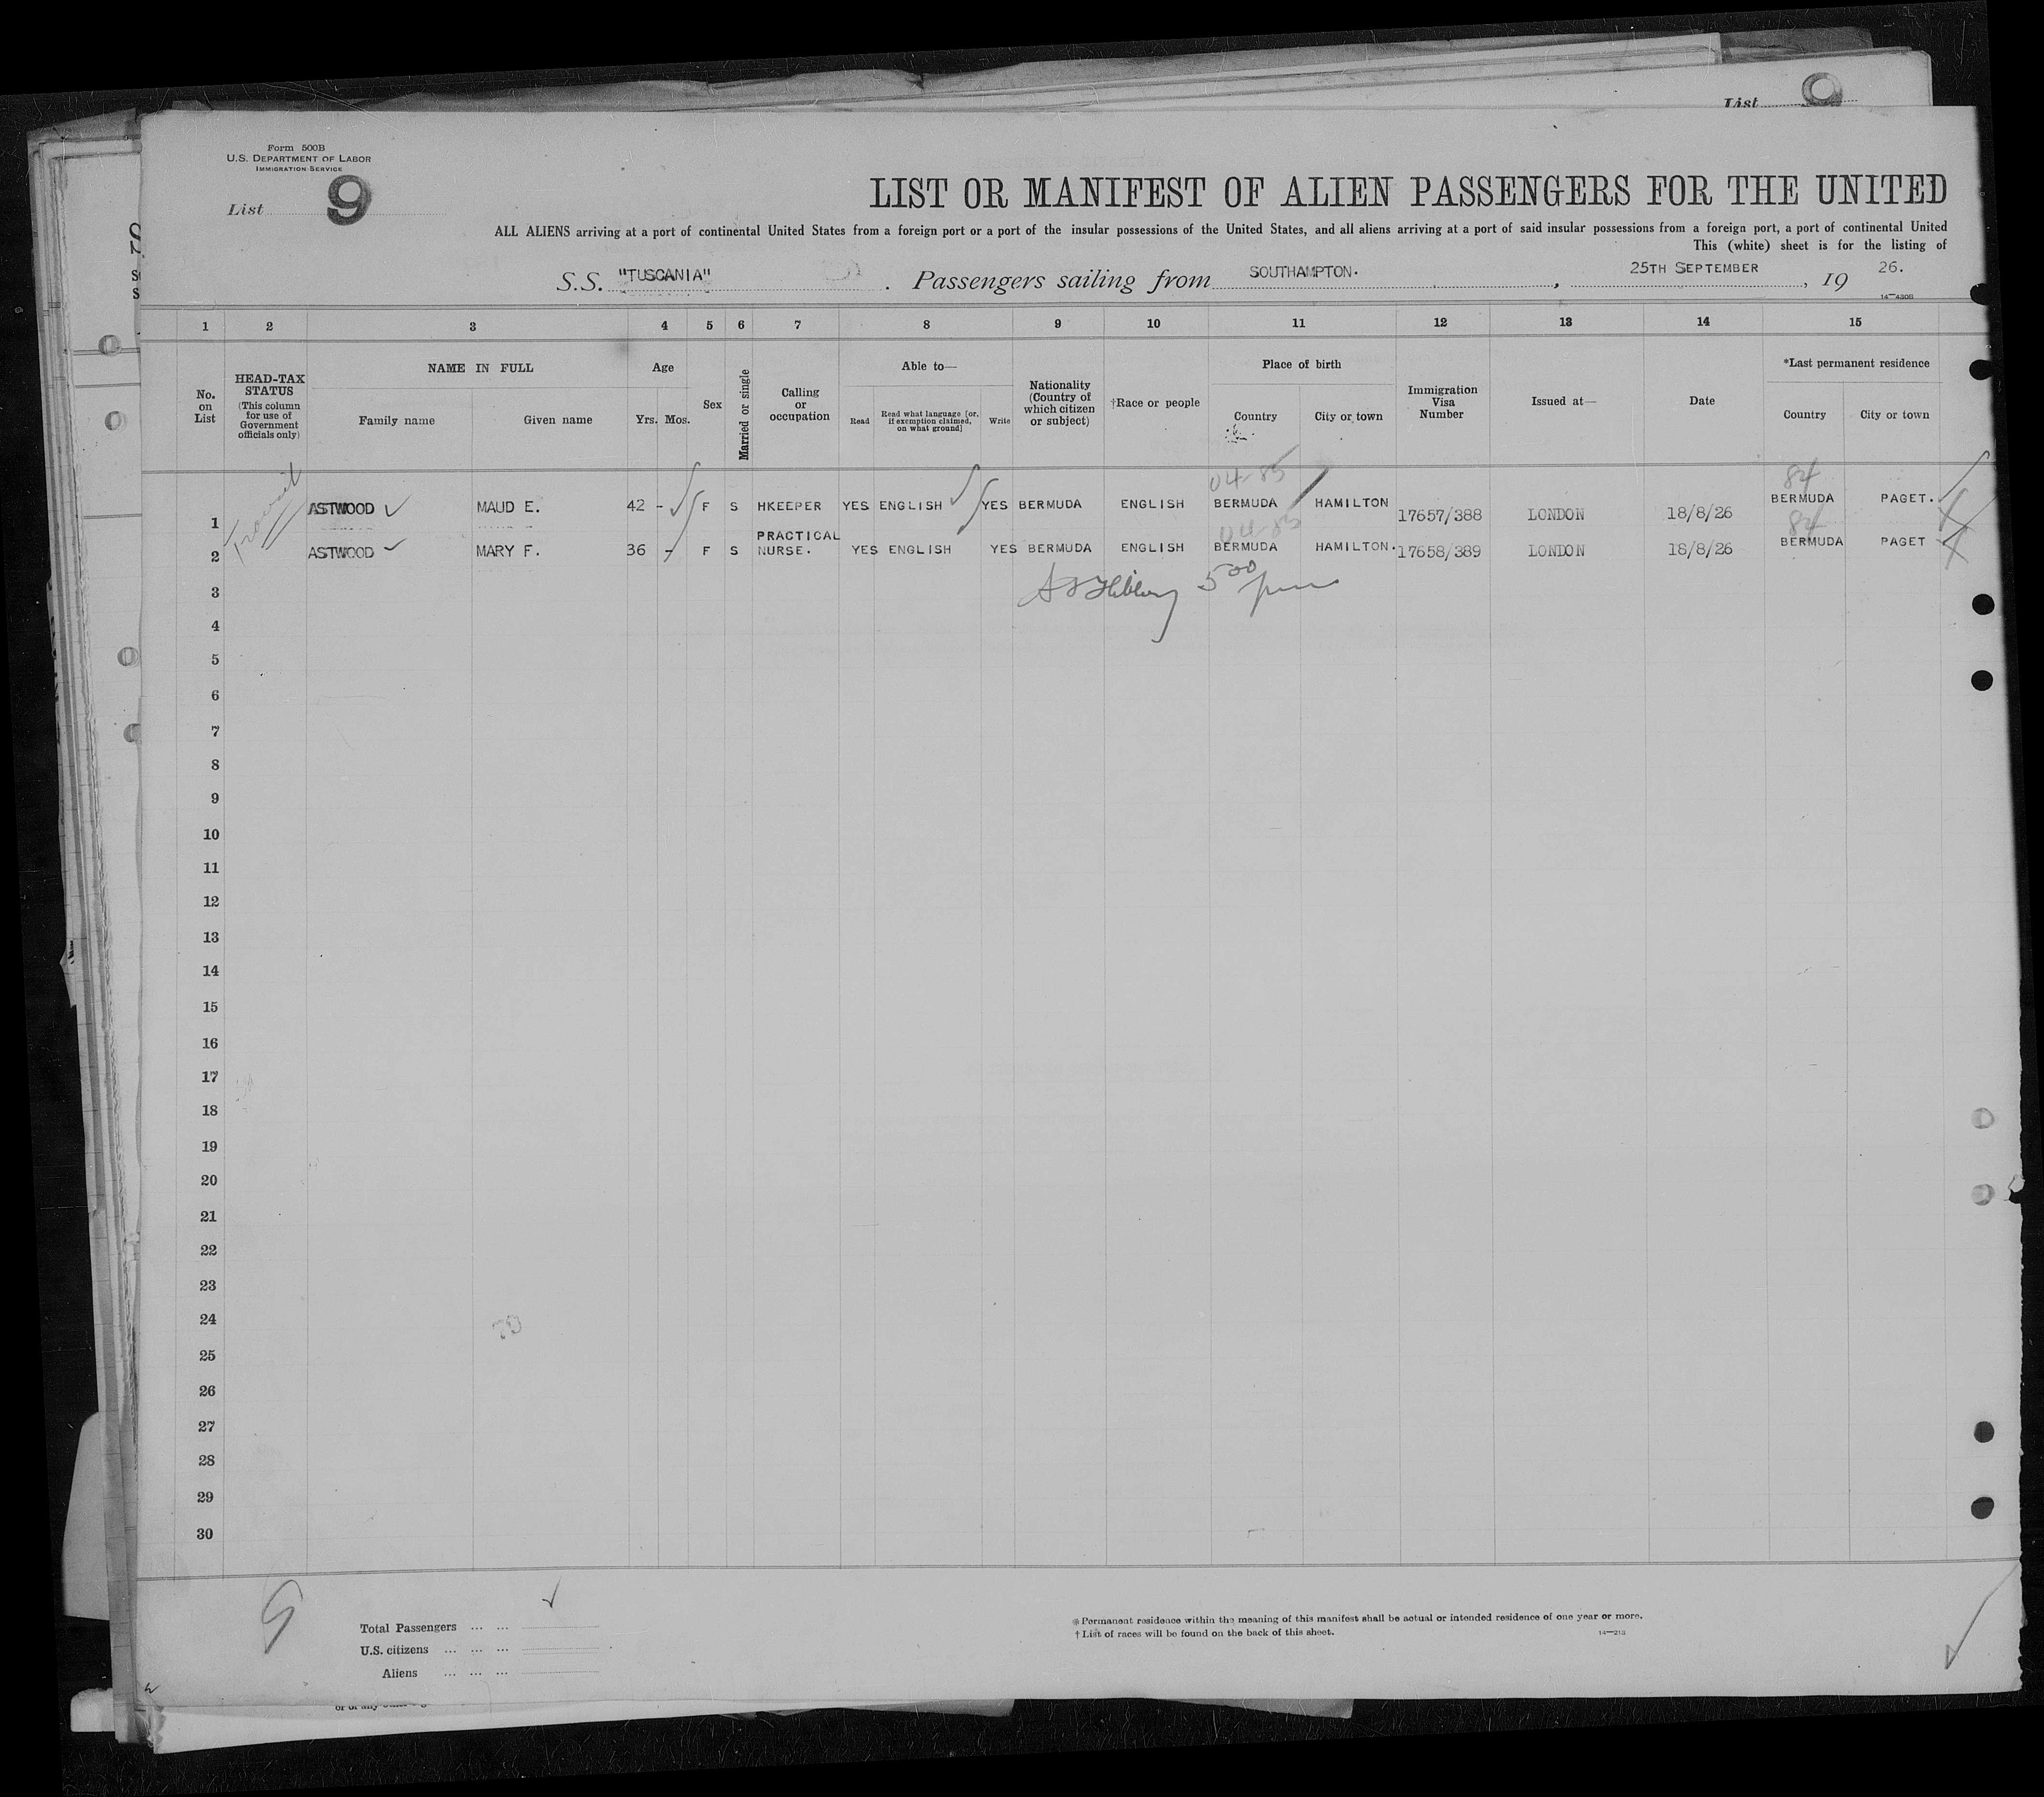 List 9
Form 500B
U.S. DEPARTMENT OF LABOR
IMMIGRATION SERVICE
List 9
LIST OR MANIFEST OF ALIEN PASSENGERS FOR THE UNITED
ALL ALIENS arriving at a port of continental United States from a foreign port or a port of the insular possessions of the United States, and all aliens arriving at a port of said insular possessions from a foreign port, a port of continental United
This (white) sheet is for the listing of
S.S. "TUSCANIA" . Passengers sailing from SOUTHAMPTON. , 25TH SEPTEMBER , 19 26.
14—430B
1 2 3 4 5 6 7 8 9 10 11 12 13 14 15
No. on List
HEAD-TAX STATUS (This column for use of Government officials only)
NAME IN FULL
Family name Given name
Age
Yrs. Mos.
Sex
Married or single
Calling or occupation
Able to—
Read Read what language [or, if exemption claimed, on what ground] Write
Nationality (Country of which citizen or subject)
†Race or people
Place of birth
Country City or town
Immigration Visa Number
Issued at—
Date
*Last permanent residence
Country City or town
Transit
04-85 84
1 ASTWOOD MAUD E. 42 - F S HKEEPER YES ENGLISH YES BERMUDA ENGLISH BERMUDA HAMILTON 17657/388 LONDON 18/8/26 BERMUDA PAGET.
04-85 84
2 ASTWOOD MARY F. 36 - F S PRACTICAL NURSE. YES ENGLISH YES BERMUDA ENGLISH BERMUDA HAMILTON. 17658/389 LONDON 18/8/26 BERMUDA PAGET
500
3
4
5
6
7
8
9
10
11
12
13
14
15
16
17
18
19
20
21
22
23
24
25
26
27
28
29
30
9
Total Passengers ... ...
U.S. citizens ... ... ...
Aliens ... ... ...
*Permanent residence within the meaning of this manifest shall be actual or intended residence of one year or more.
†List of races will be found on the back of this sheet.
14—213